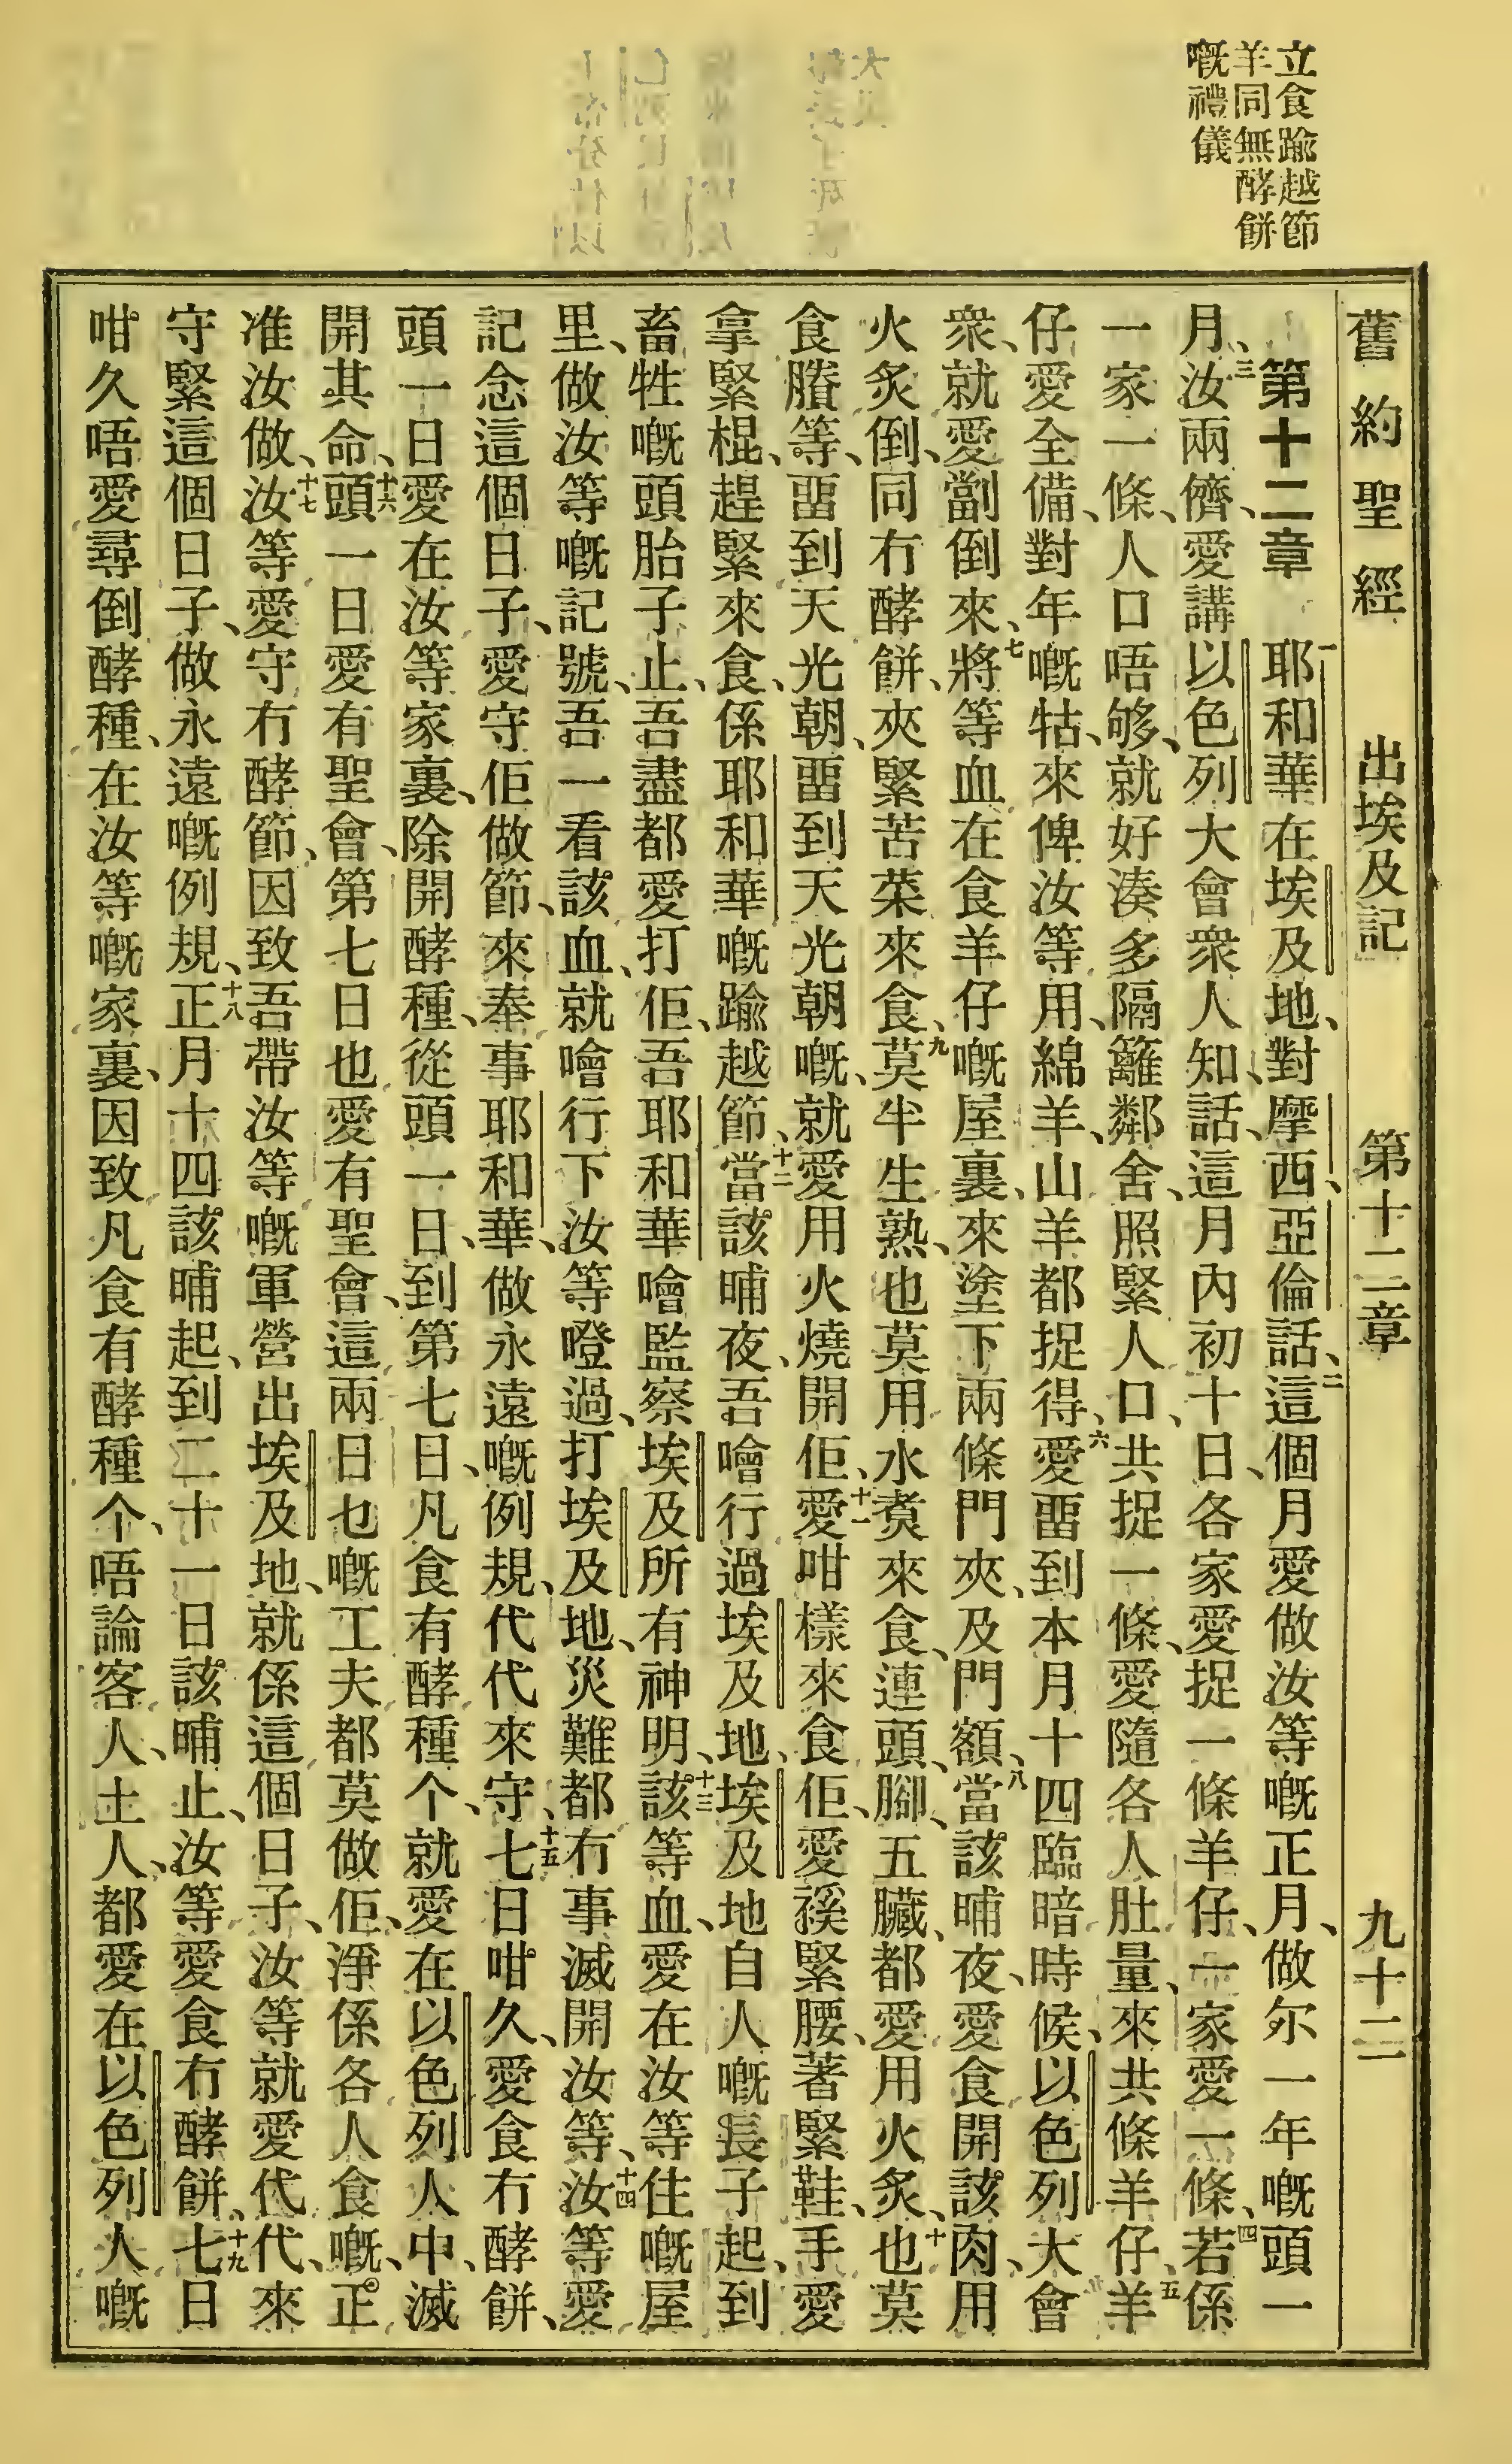 立食踰越節
羊同無酵餅
嘅禮儀
舊約聖經 出埃及記 第十二章 九十二
第十二章 一耶和華在埃及地、對摩西、亞倫話、二這個月愛做汝等嘅正月、做尔一年嘅頭一
月、三汝兩儕、愛講以色列大會衆人知、話、這月內初十日、各家愛捉一條羊仔、一家愛一條、四若係
一家一條、人口唔够、就好湊多隔籬鄰舍、照緊人口、共捉一條、愛隨各人肚量、來共條羊仔、五羊
仔愛全備、對年嘅牯、來俾汝等用、綿羊、山羊都捉得、六愛畱到本月十四臨暗時候、以色列大會
衆、就愛劏倒來、七將等血在食羊仔嘅屋裏、來塗下兩條門夾、及門額、八當該晡夜、愛食開該肉、用
火炙倒、同冇酵餅、夾緊苦菜來食、九莫半生熟、也莫用水煑來食、連頭、腳、五臟、都愛用火炙、十也莫
食賸等、畱到天光朝、畱到天光朝嘅、就愛用火燒開佢、十一愛咁樣來食佢、愛𧛾緊腰、著緊鞋、手愛
拿緊棍、趕緊來食、係耶和華嘅踰越節、十二當該晡夜、吾噲行過埃及地、埃及地自人嘅長子起、到
畜牲嘅頭胎子止、吾盡都愛打佢、吾耶和華噲監察埃及所有神明、十三該等血、愛在汝等住嘅屋
里、做汝等嘅記號、吾一看該血、就噲行下汝等噔過、打埃及地、災難都冇事滅開汝等、十四汝等愛
記念這個日子、愛守佢做節、來奉事耶和華、做永遠嘅例規、代代來守、十五七日咁久、愛食冇酵餅、
頭一日愛在汝等家裏、除開酵種、從頭一日、到第七日、凡食有酵種个、就愛在以色列人中、滅
開其命、十六頭一日愛有聖會、第七日也愛有聖會、這兩日乜嘅工夫都莫做佢、淨係各人食嘅、正
准汝做、十七汝等愛守冇酵節、因致吾帶汝等嘅軍營出埃及地、就係這個日子、汝等就愛代代、來
守緊這個日子、做永遠嘅例規、十八正月十四該晡起、到二十一日該晡止、汝等愛食冇酵餅、十九七日
咁久唔愛尋倒酵種、在汝等嘅家裏、因致凡食有酵種个、唔論客人、土人、都愛在以色列人嘅